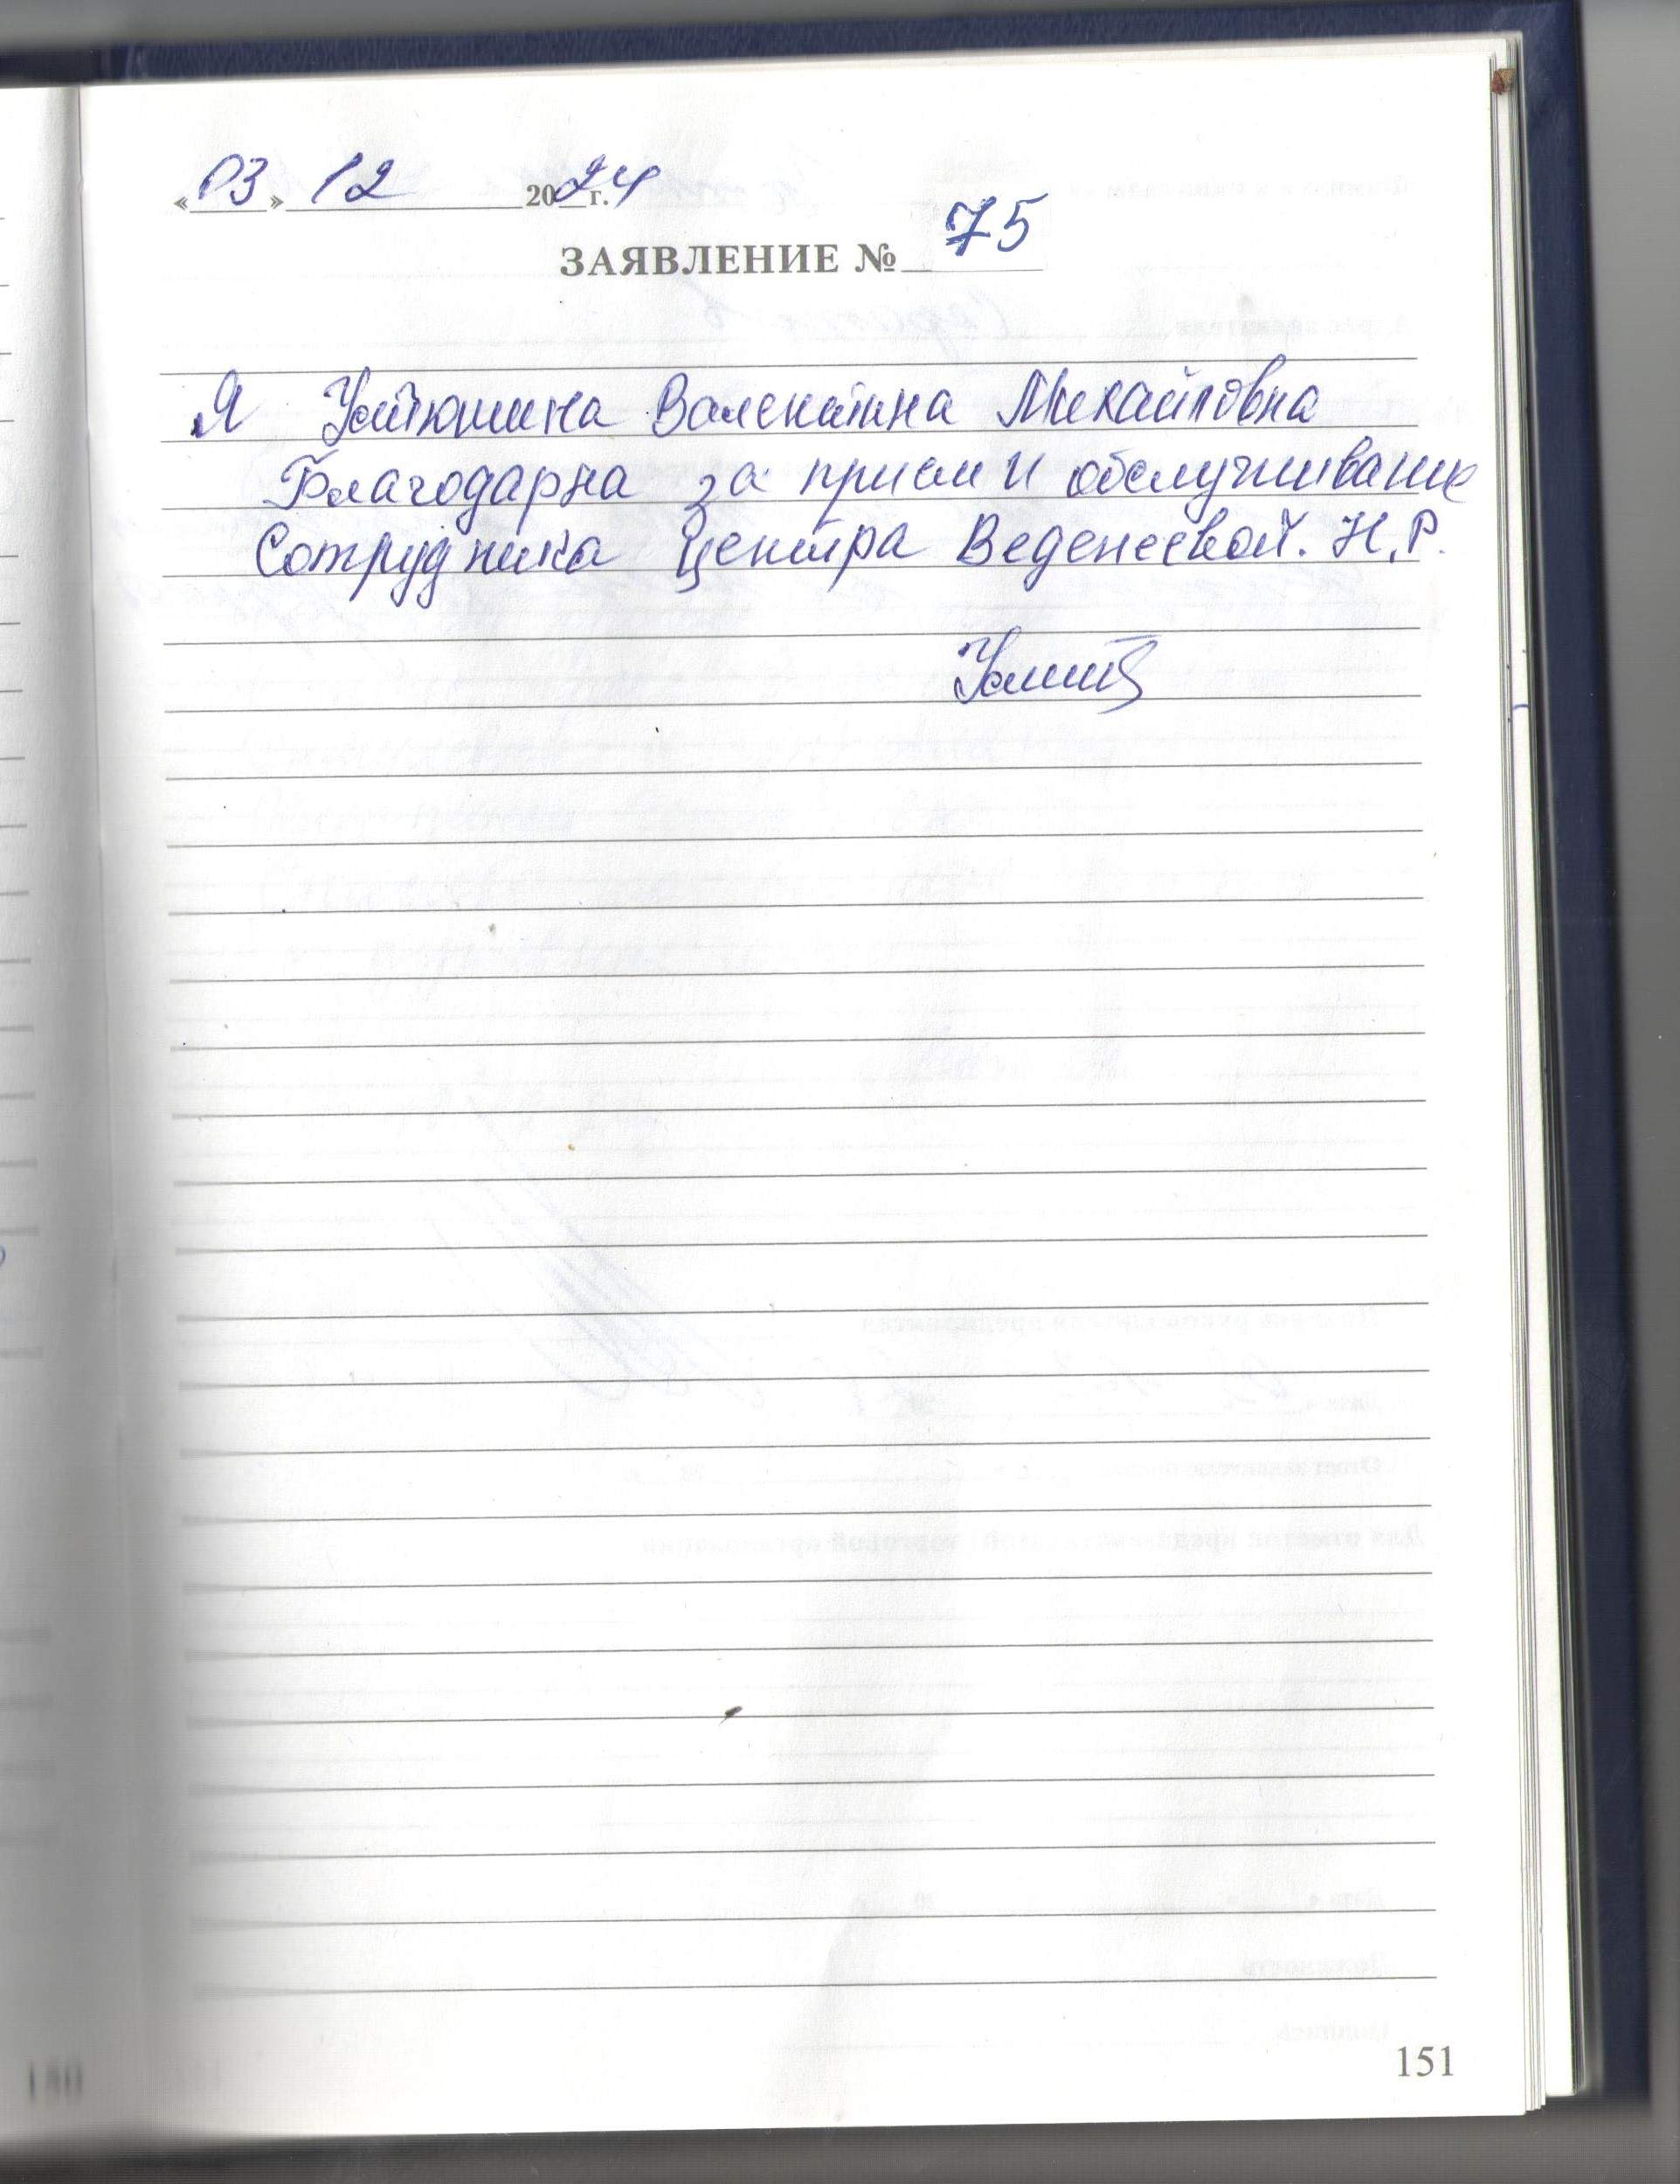 «03» 12 2024 г.
ЗАЯВЛЕНИЕ № 75
Я Устюшина Валентина Михайловна
Благодарна за прием и обслуживание
Сотрудника Центра Веденеевой. Н.Р.
151